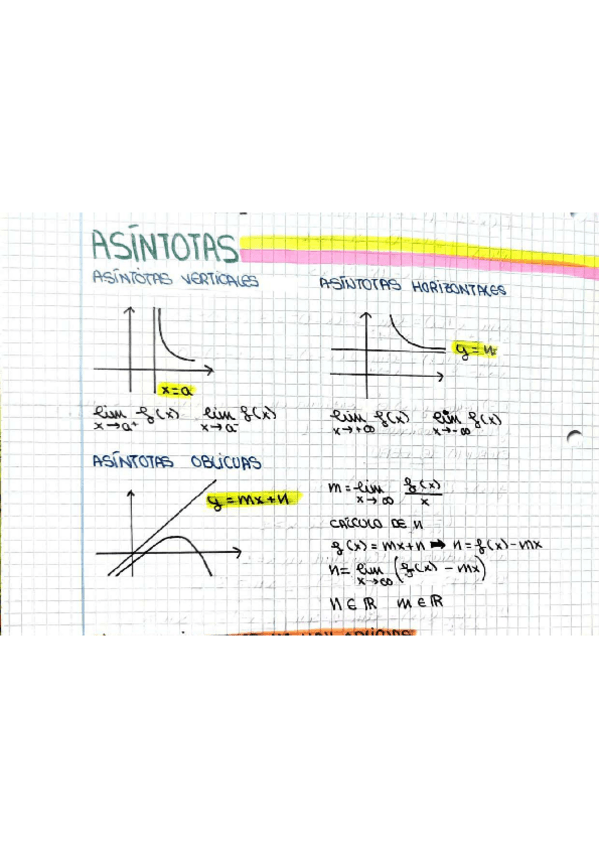 ASÍNTOTAS
ASÍNTOTAS VERTICALES
x=a
lim f(x) lim f(x)
x→a⁺ x→a⁻
ASÍNTOTAS HORIZONTALES
y=n
lim f(x) lim f(x)
x→+∞ x→-∞
ASÍNTOTAS OBLICUAS
y=mx+n
m=lim f(x)/x
x→∞
CÁLCULO DE N
f(x)=mx+n → n=f(x)-mx
n=lim (f(x) - mx)
x→∞
n∈ℝ m∈ℝ